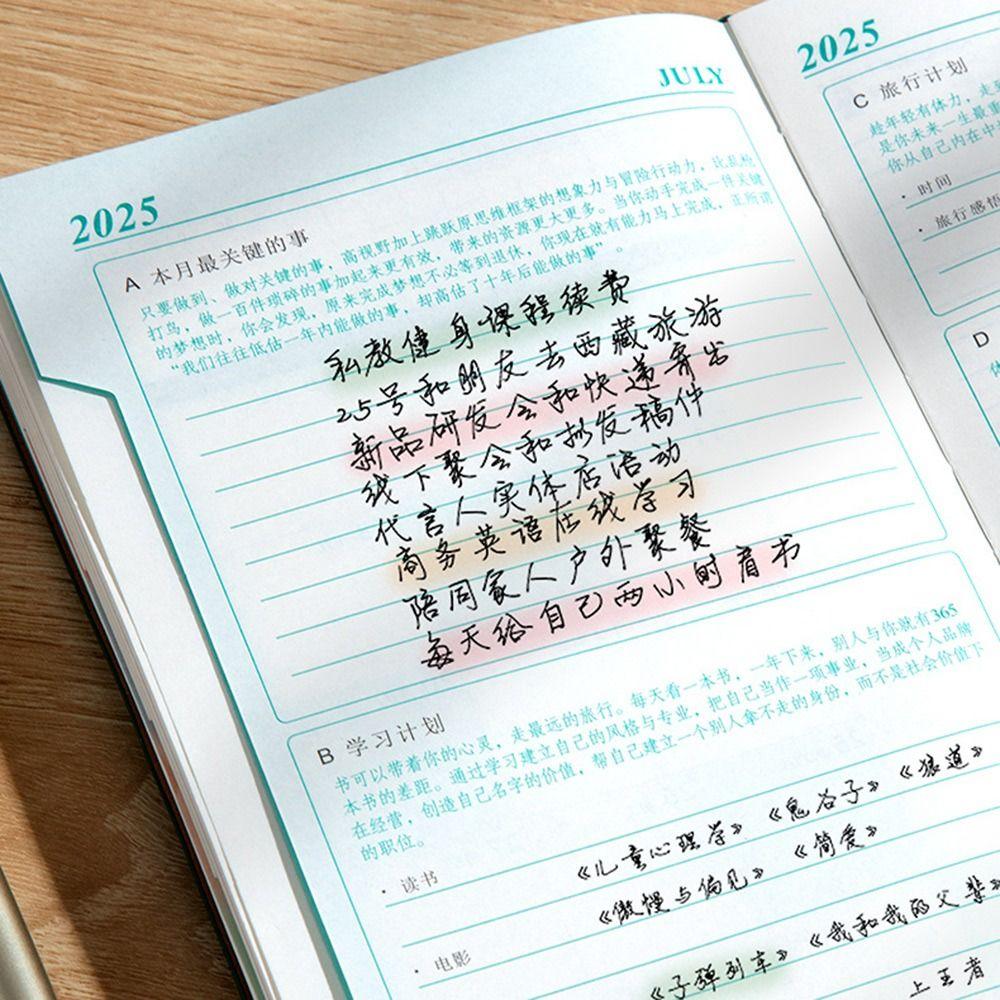 2025
JULY
A 本月最关键的事
只要做到、做对关键的事，高视野加上跳跃原思维框架的想象力与冒险行动力，比乱枪
打鸟，做一百件琐碎的事加起来更有效，带来的资源更大更多。当你动手完成一件关键
的梦想时，你会发现，原来完成梦想不必等到退休，你现在就有能力马上完成，正所谓
“我们往往低估一年内能做的事，却高估了十年后能做的事”。
私教健身课程续费
25号和朋友去西藏旅游
新品研发会和快递寄出
线下聚会和拟发稿件
代言人实体店活动
商务英语在线学习
陪同家人户外聚餐
每天给自己两小时看书
B 学习计划
书可以带着你的心灵，走最远的旅行。每天看一本书，一年下来，别人与你就有365
本书的差距。通过学习建立自己的风格与专业，把自己当作一项事业，当成个人品牌
在经营，创造自己名字的价值，帮自己建立一个别人拿不走的身份，而不是社会价值下
的职位。
· 读书
《儿童心理学》 《鬼谷子》 《狼道》
《傲慢与偏见》 《简爱》
· 电影
《子弹列车》 《我和我的父辈》
上王者
2025
C 旅行计划
趁年轻有体力，走
是你未来一生最重
你从自己内在中
· 时间
· 旅行感悟
D